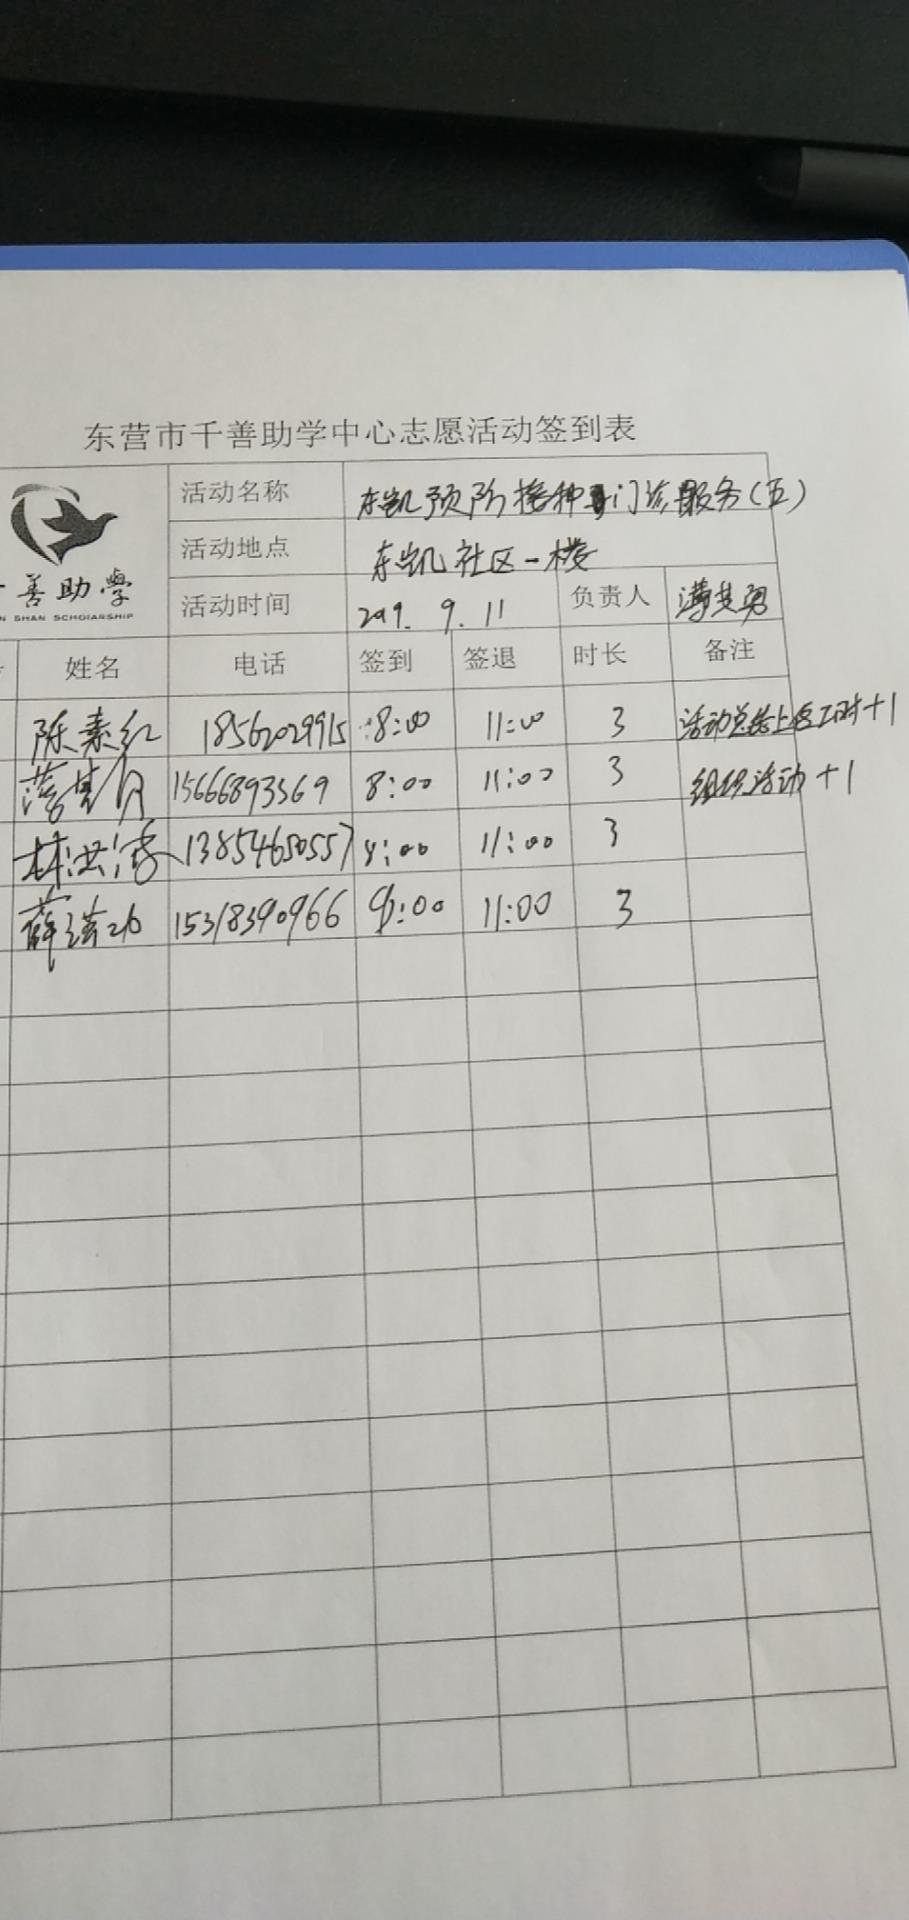 东营市千善助学中心志愿活动签到表
善助學
N SHAN SCHOIARSHIP
活动名称 东凯预防接种门诊服务(五)
活动地点 东凯社区一楼
活动时间 2019. 9. 11 负责人
姓名 电话 签到 签退 时长 备注
陈素红 18562029915 8:00 11:00 3 活动总结上传工时+1
15666893569 8:00 11:00 3 组织活动+1
林洪涛 13854650557 8:00 11:00 3
薛 15318390966 8:00 11:00 3